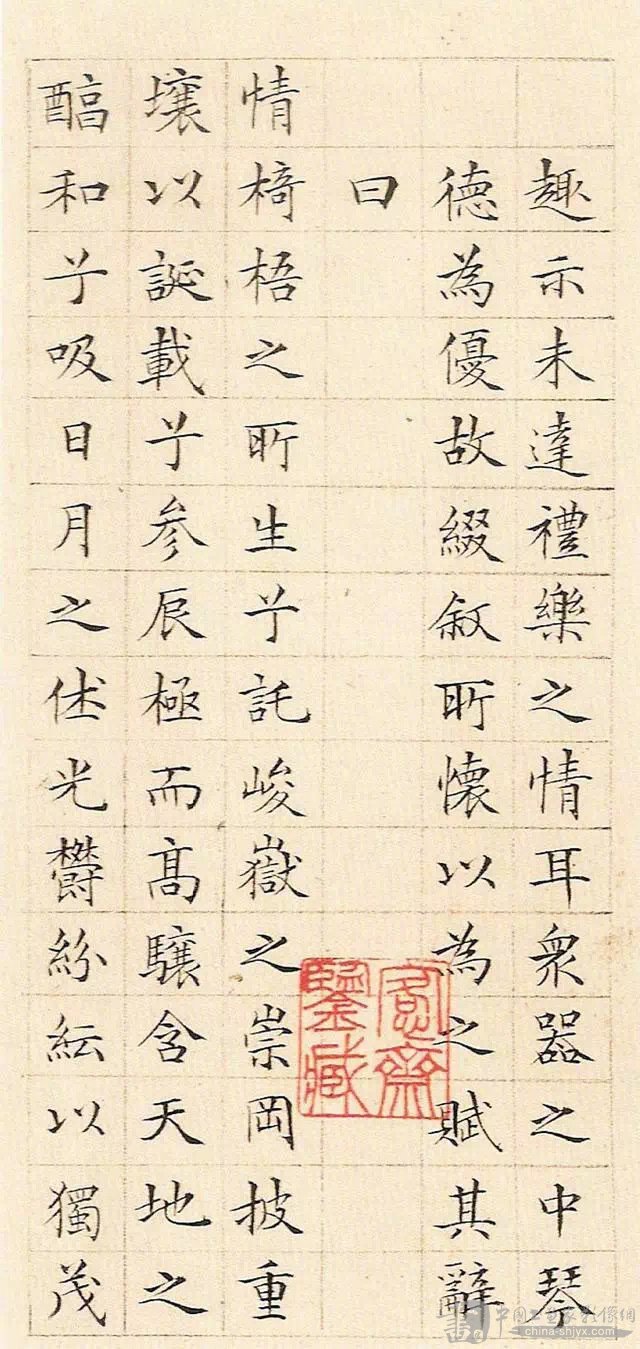 趣示未達禮樂之情耳衆器之中琴
德為優故綴敘所懷以為之賦其辭
曰
情椅梧之所生兮託峻嶽之崇岡披重
壤以誕載兮參辰極而髙驤含天地之
醕和兮吸日月之休光欝紛紜以獨茂
愙齋
鑒藏
china-shjyx.com